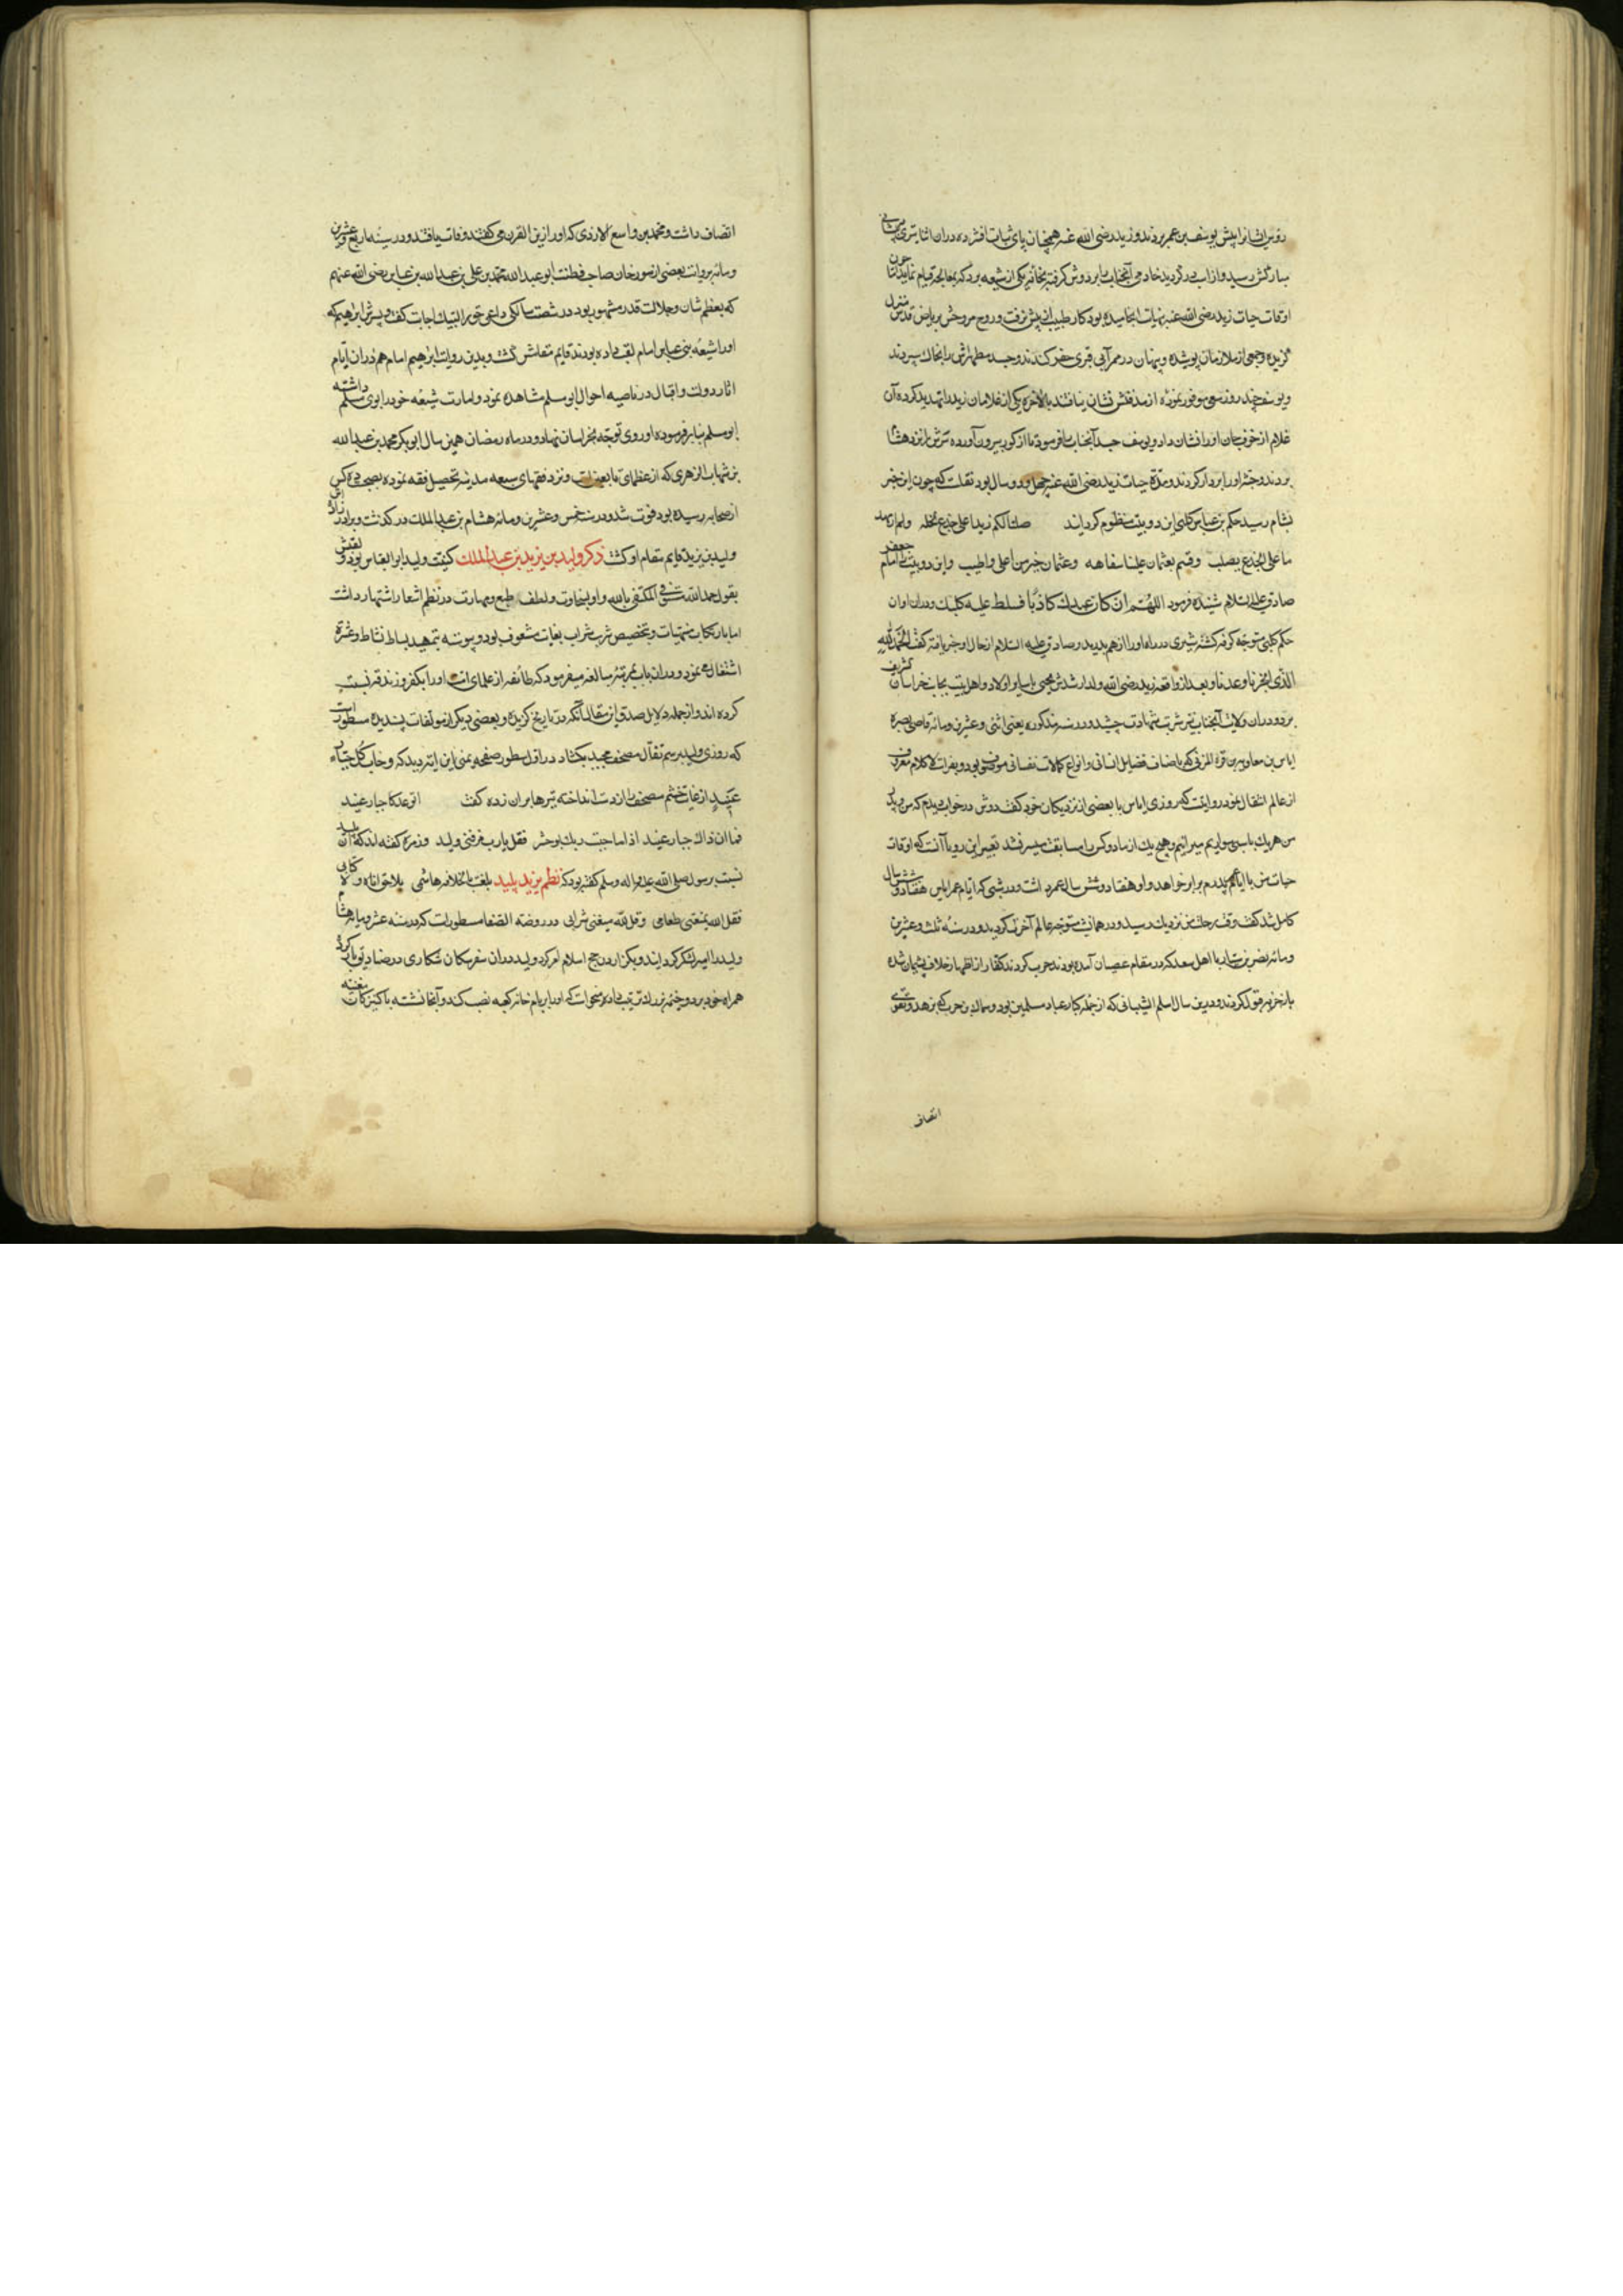 رؤس ایشانرا پیش یوسف بن عمر بردند و زید رضی الله عنه همچنان پای ثبات افشرده در ان اثنا تیری بر پیشانی
مبارکش رسید و از اسب در گردید خادمی آنجناب را بر دوش گرفته بخانه یکی از شیعه برد که بمعالجه قیام نماید اما چون
اوقات حیات زید رضی الله عنه بنهایت انجامیده بود کار طبیب از پیش نرفت و روح مروحش بریاض قدس منزل
گزیده و جمعی از ملازمان پوشیده و پنهان در ممر آبی قبری حفر کندند و جسد مطهرش را بخاک سپردند
و یوسف چند روز سعی موفور نموده از مدفنش نشان نیافتند بالاخره یکی از غلامان زید را تهدید کرده آن
غلام از خوف جان او را نشان داد و یوسف جسد آنجناب را فرمود تا از گور بیرون آورده سرش را نزد هشام
بردند و جثه او را بر دار کردند و مدة حیات زید رضی الله عنه چهل و دو سال بود نقلست که چون این خبر
بشام رسید حکم بن عباس کلبی این دو بیت منظوم گردانید صلبنا لکم زیدا علی جذع نخلة ولم ار مهد
ما علی الجذع یصلب وقستم بعثمان علیا سفاهه وعثمان خیر من علی واطیب و این دو بیت را امام جعفر
صادق علیه السلام شنیده فرمود اللهم ان کان عبدک کاذبا فسلط علیه کلبک و در ان اوان
حکم کلبی متوجه کوفه گشته شیری در راه او را از هم بدرید و صادق علیه السلام از حال او خبر یافته گفت الحمد لله
الذی انجز ما وعدنا و بعد از واقعه زید رضی الله ولد ارشدش یحیی با سایر اولاد و اهل بیت بجانب خراسان تشریف
برد و در ان ولایت آنجناب نیز شربت شهادت چشید و در سنه مذکوره یعنی اثنی و عشرین و مائه قاضی بصره
ایاس بن معاویه بن قره المزنی که باصناف فضایل انسانی و انواع کمالات نفسانی موصوف بود و بفراست لا کلام معروف
از عالم انتقال نمود روایتست که روزی ایاس با بعضی از نزدیکان خود گفت دوش در خواب دیدم که من و پدر
من هریک بر اسبی سواریم میرانیم و هیچ یک از ما دو کس را مسابقت میسر نشد تعبیر این رویا آنست که اوقات
حیات من با ایام عمر پدرم برابر خواهد و او هفتاد و شش سال عمر داشت و در شبی که ایام عمر ایاس هفتاد و شش سال
کامل شد گفت وقت رحلت من نزدیک رسید و در همان شب متوجه عالم آخرت گردید و در سنه ثلث و عشرین
و مائه نصر بن سیار با اهل سغد که در مقام عصیان آمده بودند حرب کردند کفار از اظهار خلاف پشیمان شده
باز جزیه قبول کردند و درین سال اسلم الشیبانی که از جمله کبار عباد مسلمین بود و سماک بن حرب که بزهد و تقوی
اتصاف
اتصاف داشت و محمد بن واسع الازدی که او را زین القرن می گفتند وفات یافتند و در سنه اربع و عشرین
و مائه بروایت بعضی از مورخان صاحب فطنت ابو عبد الله محمد بن علی بن عبد الله بن عباس رضی الله عنهم
که بعظم شان و جلالت قدر مشهور بود در شصت سالگی داعی حق را لبیک اجابت گفت و پسرش ابراهیم که
او را شیعه بنی عباس امام لقب داده بودند قایم مقامش گشت و بدین روایت ابراهیم امام هم در ان ایام
اثار دولت و اقبال در ناصیه احوال ابو مسلم مشاهده نمود و امارت شیعه خود را بوی مسلم داشته
ابو مسلم بنابر فرموده او روی توجه بخراسان نهاد و در ماه رمضان همین سال ابو بکر محمد بن عبد الله
بن شهاب الزهری که از عظمای تابعین است و نزد فقهای سبعه مدینه تحصیل فقه نموده بصحبت ده کس
از صحابه رسیده بود فوت شد و در سنه خمس و عشرین و مائه هشام بن عبد الملک در گذشت و برادر زاده اش
ولید بن یزید قایم مقام او گشت ذکر ولید بن یزید بن عبد الملک کنیت ولید ابو العباس بود و لقبش
بقول حمد الله مستوفی المکتفی بالله و او بسخاوت و لطف طبع و مهارت در نظم اشعار اشتهار داشت
اما بارتکاب منهیات و بتخصیص شرب شراب بغایت مشعوف بود و پیوسته بتمهید بساط نشاط و عشرة
اشتغال می نمود و در ان باب بمرتبه مبالغه میفرمود که طائفه از علمای امت او را بکفر و زندقه نسبت
کرده اند و از جمله دلایل صدق این مقال آنکه در تاریخ گزیده و بعضی دیگر از مولفات پسندیده مسطور است
که روزی ولید برسم تفأل مصحف مجید بگشاد در اول سطور صفحه یمنی این ایة دید که وخاب کل جبار
عنید از غایت خشم مصحف را از دست انداخته تیرها بران زده گفت اتوعد کل جبار عنید
فها ان ذاک جبار عنید اذا ما جئت ربک یوم حشر فقل یارب خرقنی ولید و زمره گفته اند که آن پلید
نسبت برسول صلی الله علیه و اله وسلم گفته بود که نظم یزید پلید بلعب بالخلافه هاشمی بلا وحی اتاه ولا کتاب
فقل لله یمنعنی طعامی وقل لله یمنعنی شرابی در روضه الصفا مسطورست که در سنه عشر و مایه هشام
ولید را امیر لشکر گردانید و بگزاردن حج اسلام امر کرد و ولید در ان سفر سکان شکاری در صنادیق بار کرده
همراه خود برد و خیمه بزرگ ترتیب داده میخواست که او را بر بام خانه کعبه نصب کند و آنجا نشسته با کنیزکان مغنیه